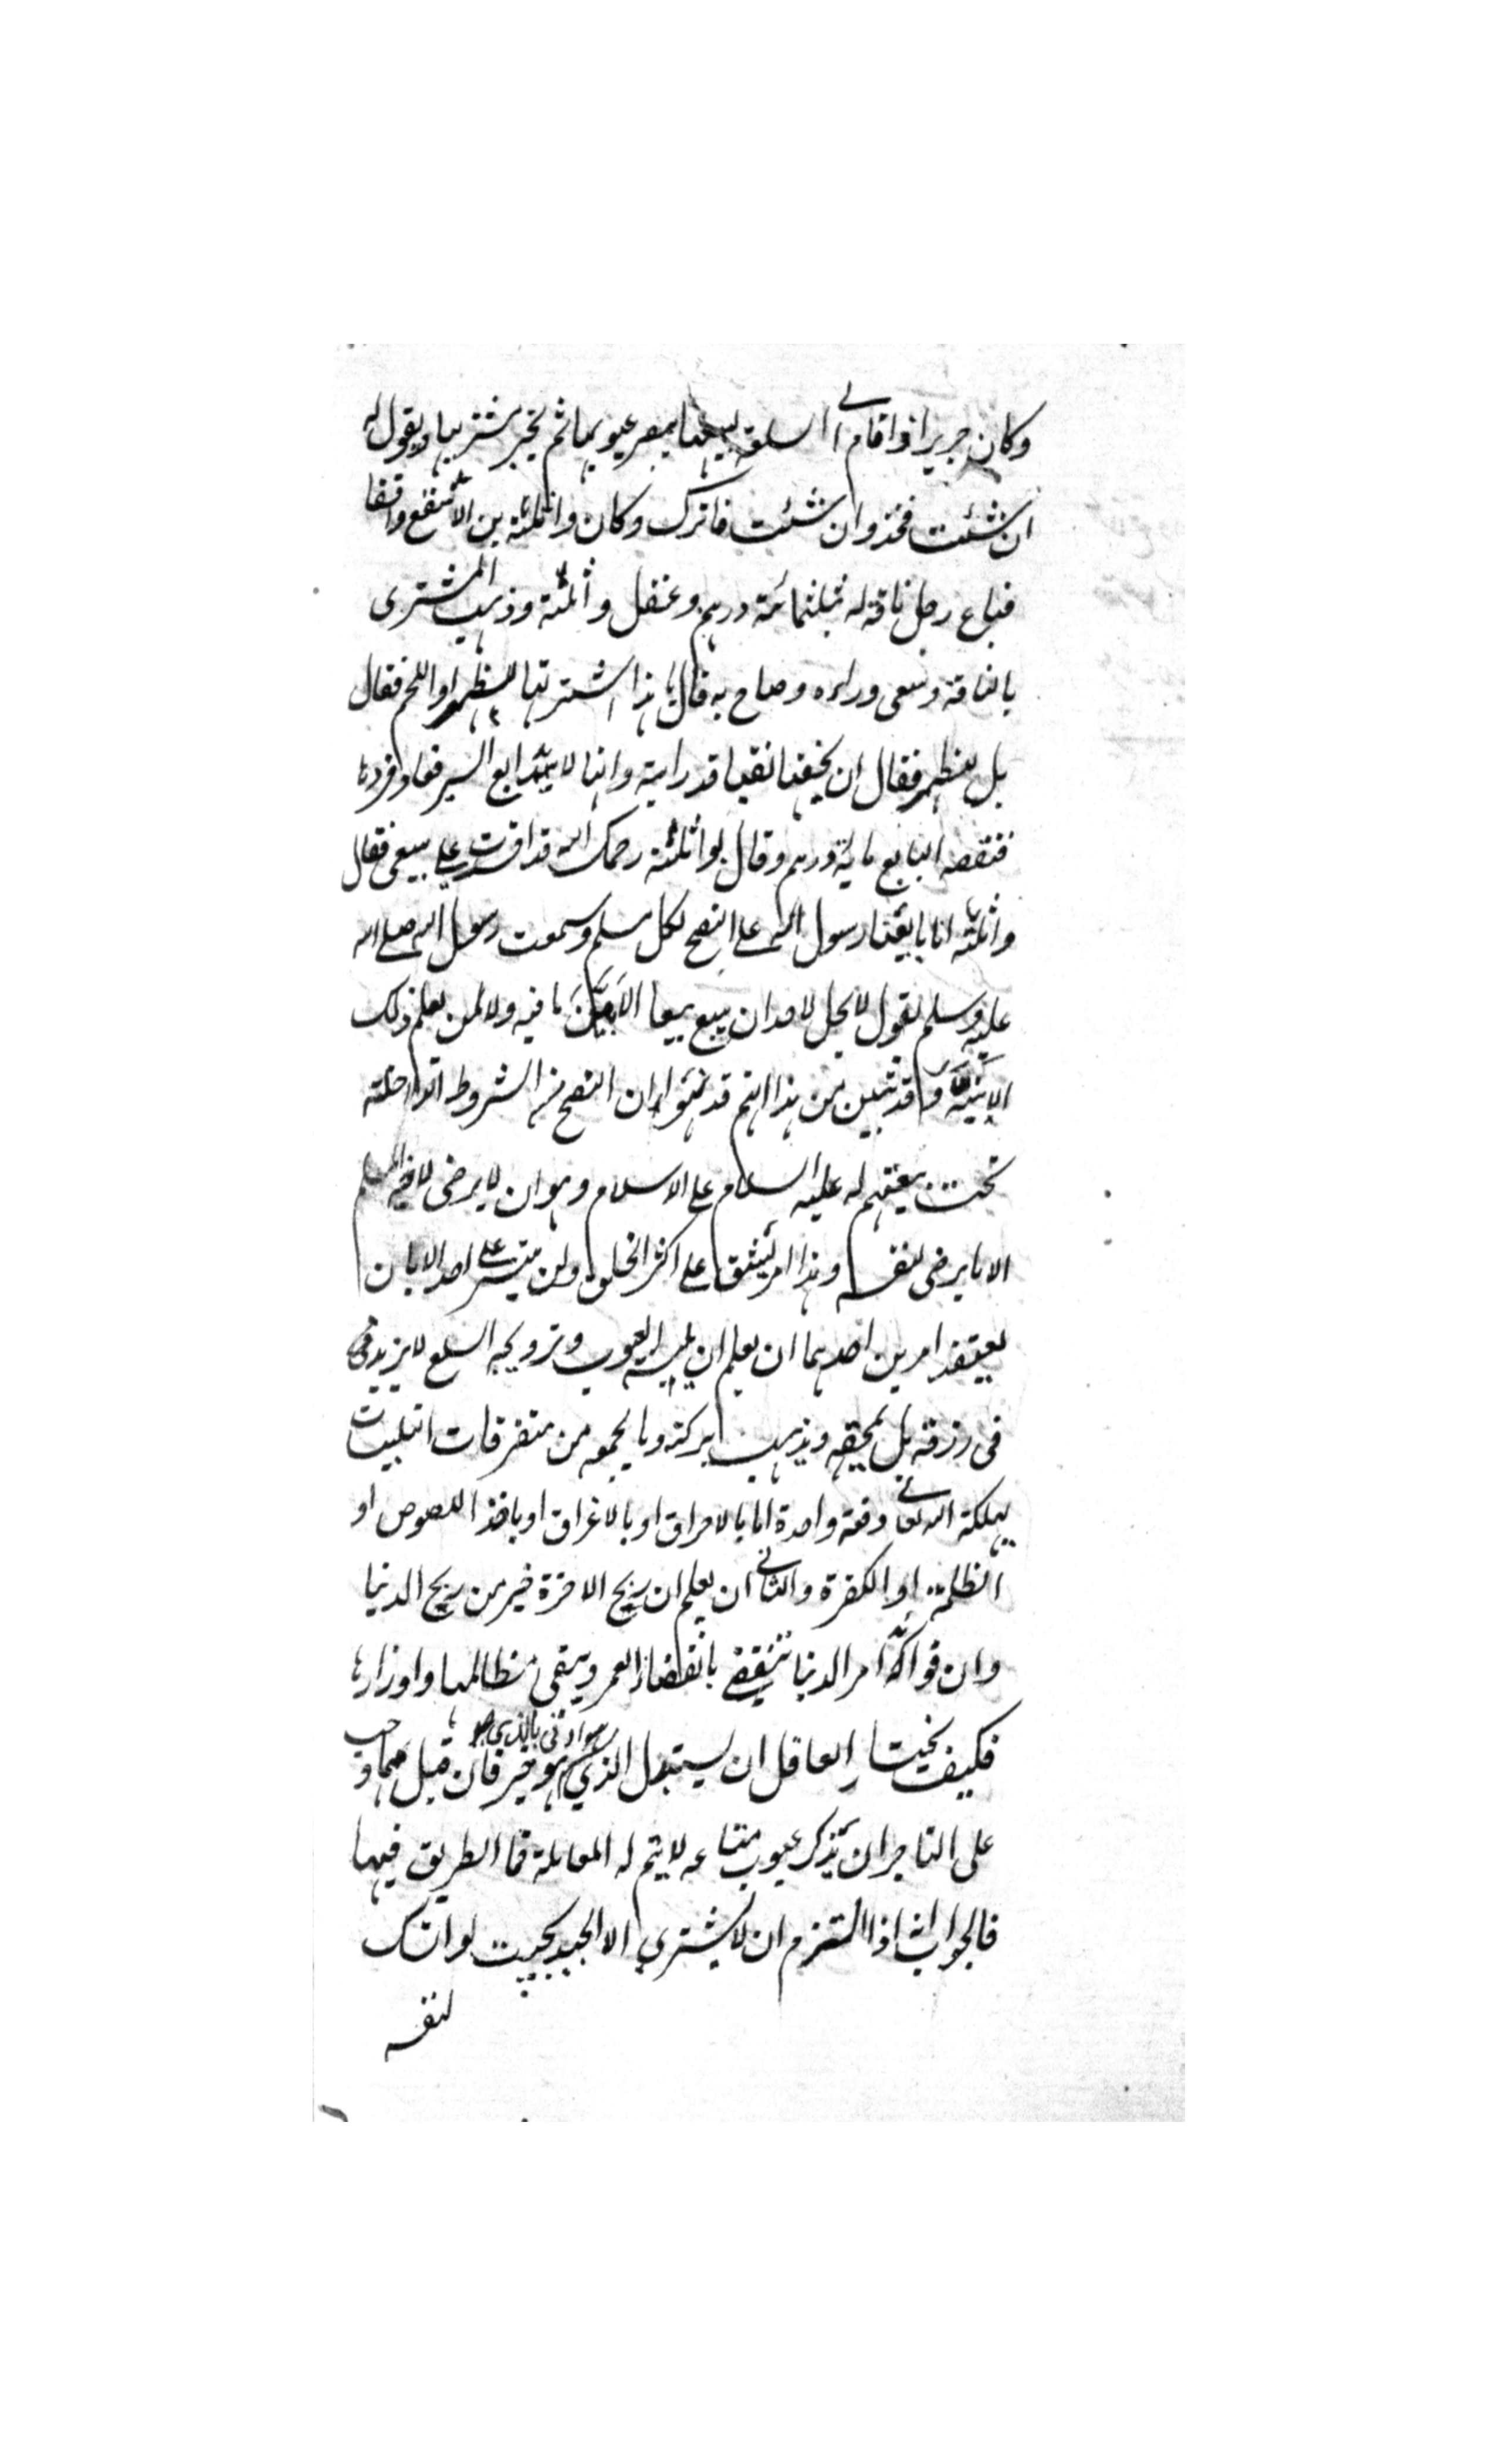 وكان جرير اذا قام الى السلعة يبيعها يبصر عيوبها ثم يخير مشتريها ويقول له
ان شئت فخذ وان شئت فاترك وكان واثلثة بن الاسقع واقفا
فباع رجل ناقة له بثلثمائة درهم وغفل واثلثة وذهب المشترى
بالناقة وسعى وراءه وصاح به قال يا هذا اشتريتها للظهر او اللحم فقال
بل للظهر فقال ان بخفها نقبا قد رايته وانها لا يتتابع السير فعاد فردها
فنقصه البايع ماية درهم وقال لواثلثة رحمك الله قد افسدت على بيعى فقال
واثلثة انا بايعنا رسول الله على النصح لكل مسلم وسمعت رسول الله صلى الله
عليه وسلم يقول لا يحل لاحد ان يبيع بيعا الا بَيَّنَ ما فيه ولا لمن يعلم ذلك
الا بَيَّنَهُ وقد تبين من هذا انهم قد ان النصح من الشروط الداخلة
تحت بيعتهم له عليه السلام على الاسلام وهو ان لا يرضى لاخيه المسلم
الا ما يرضى لنفسه وهذا امر يشق على اكثر الخلق ولن يتيسر على احد الا بان
يعتقد امرين احدهما ان يعلم ان تلبيسه العيوب وترويجه السلع لا يزيد فى
فى رزقه بل يمحقه ويذهب ببركته وما يجمعه من متفرقات التلبيسات
يهلكته الله تعالى دفعة واحدة اما بالاحراق او بالاغراق او باخذ اللصوص او
الظلمة او الكفرة والثانى ان يعلم ان ربح الاخرة خير من ربح الدنيا
وان فواكه امر الدنيا تنقضى بانقضاء العمر ويبقى مظالمها واوزارها
فكيف يختار العاقل ان يستبدل الذي هو ادنى بالذي هو خير فان قيل مهما وجب
على التاجر ان يذكر عيوب متاعه لا يتم له المعاملة فما الطريق فيها
فالجواب انه اذا التزم ان لا يشتري الا الجيد بحيث لو امسك
لنفسه